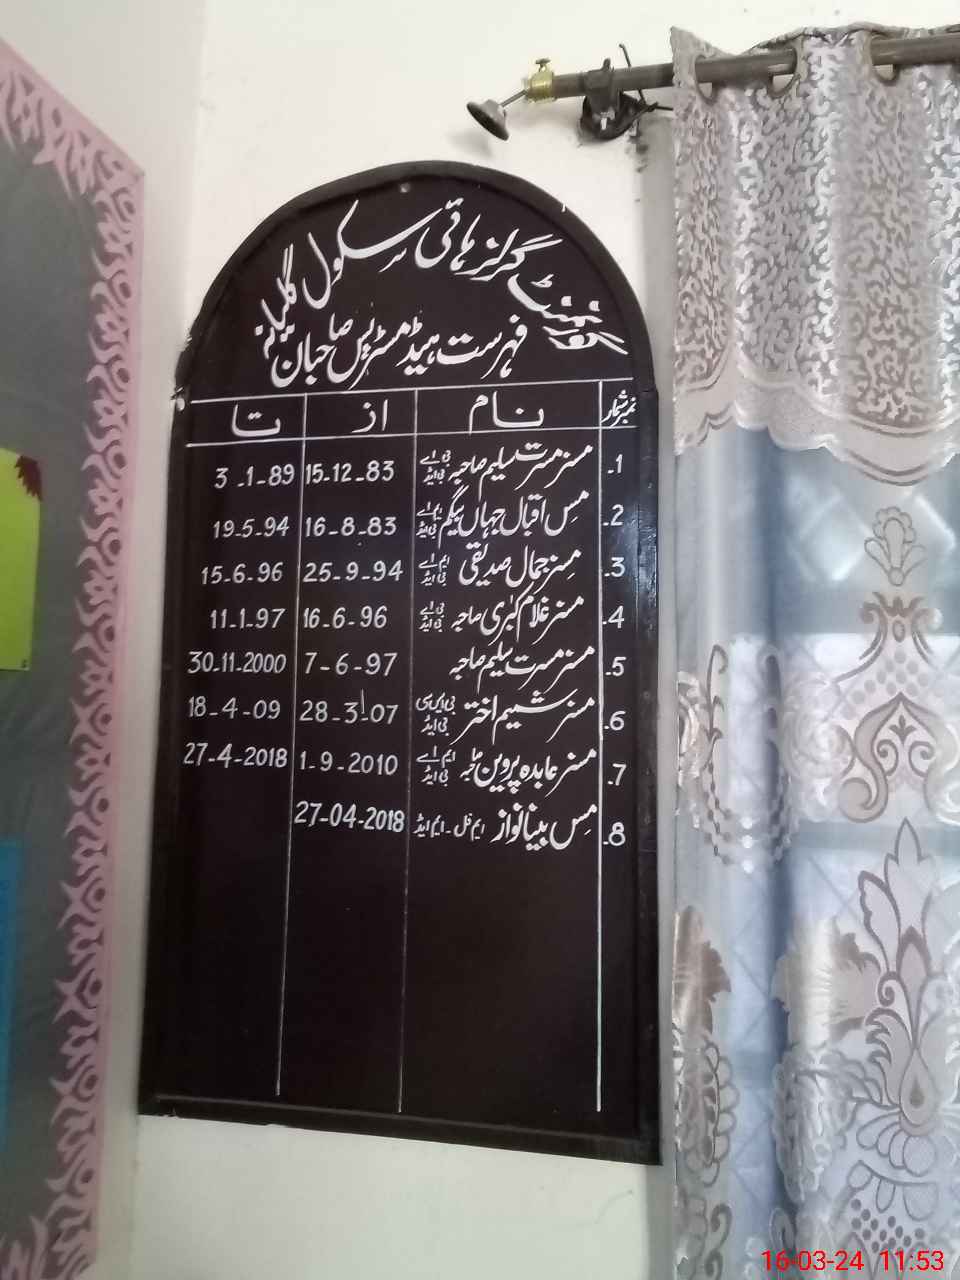 گورنمنٹ گرلز ہائی سکول گلیانہ
فہرست ہیڈ مسٹریس صاحبان
نمبر شمار نام از تا
1. مسز مسرت سلیم صاحبہ بی اے بی ایڈ 15-12-83 3-1-89
2. مس اقبال جہاں بیگم ایم اے بی ایڈ 16-8-83 19-5-94
3. مسز جمال صدیقی ایم اے بی ایڈ 25-9-94 15-6-96
4. مسز غلام کبریٰ صاحبہ بی اے بی ایڈ 16-6-96 11-1-97
5. مسز مسرت سلیم صاحبہ 7-6-97 30-11-2000
6. مسز شمیم اختر بی ایس سی بی ایڈ 28-3-07 18-4-09
7. مسز عابدہ پروین صاحبہ ایم اے بی ایڈ 1-9-2010 27-4-2018
8. مس بینا نواز ایم فل - ایم ایڈ 27-04-2018
16-03-24 11:53